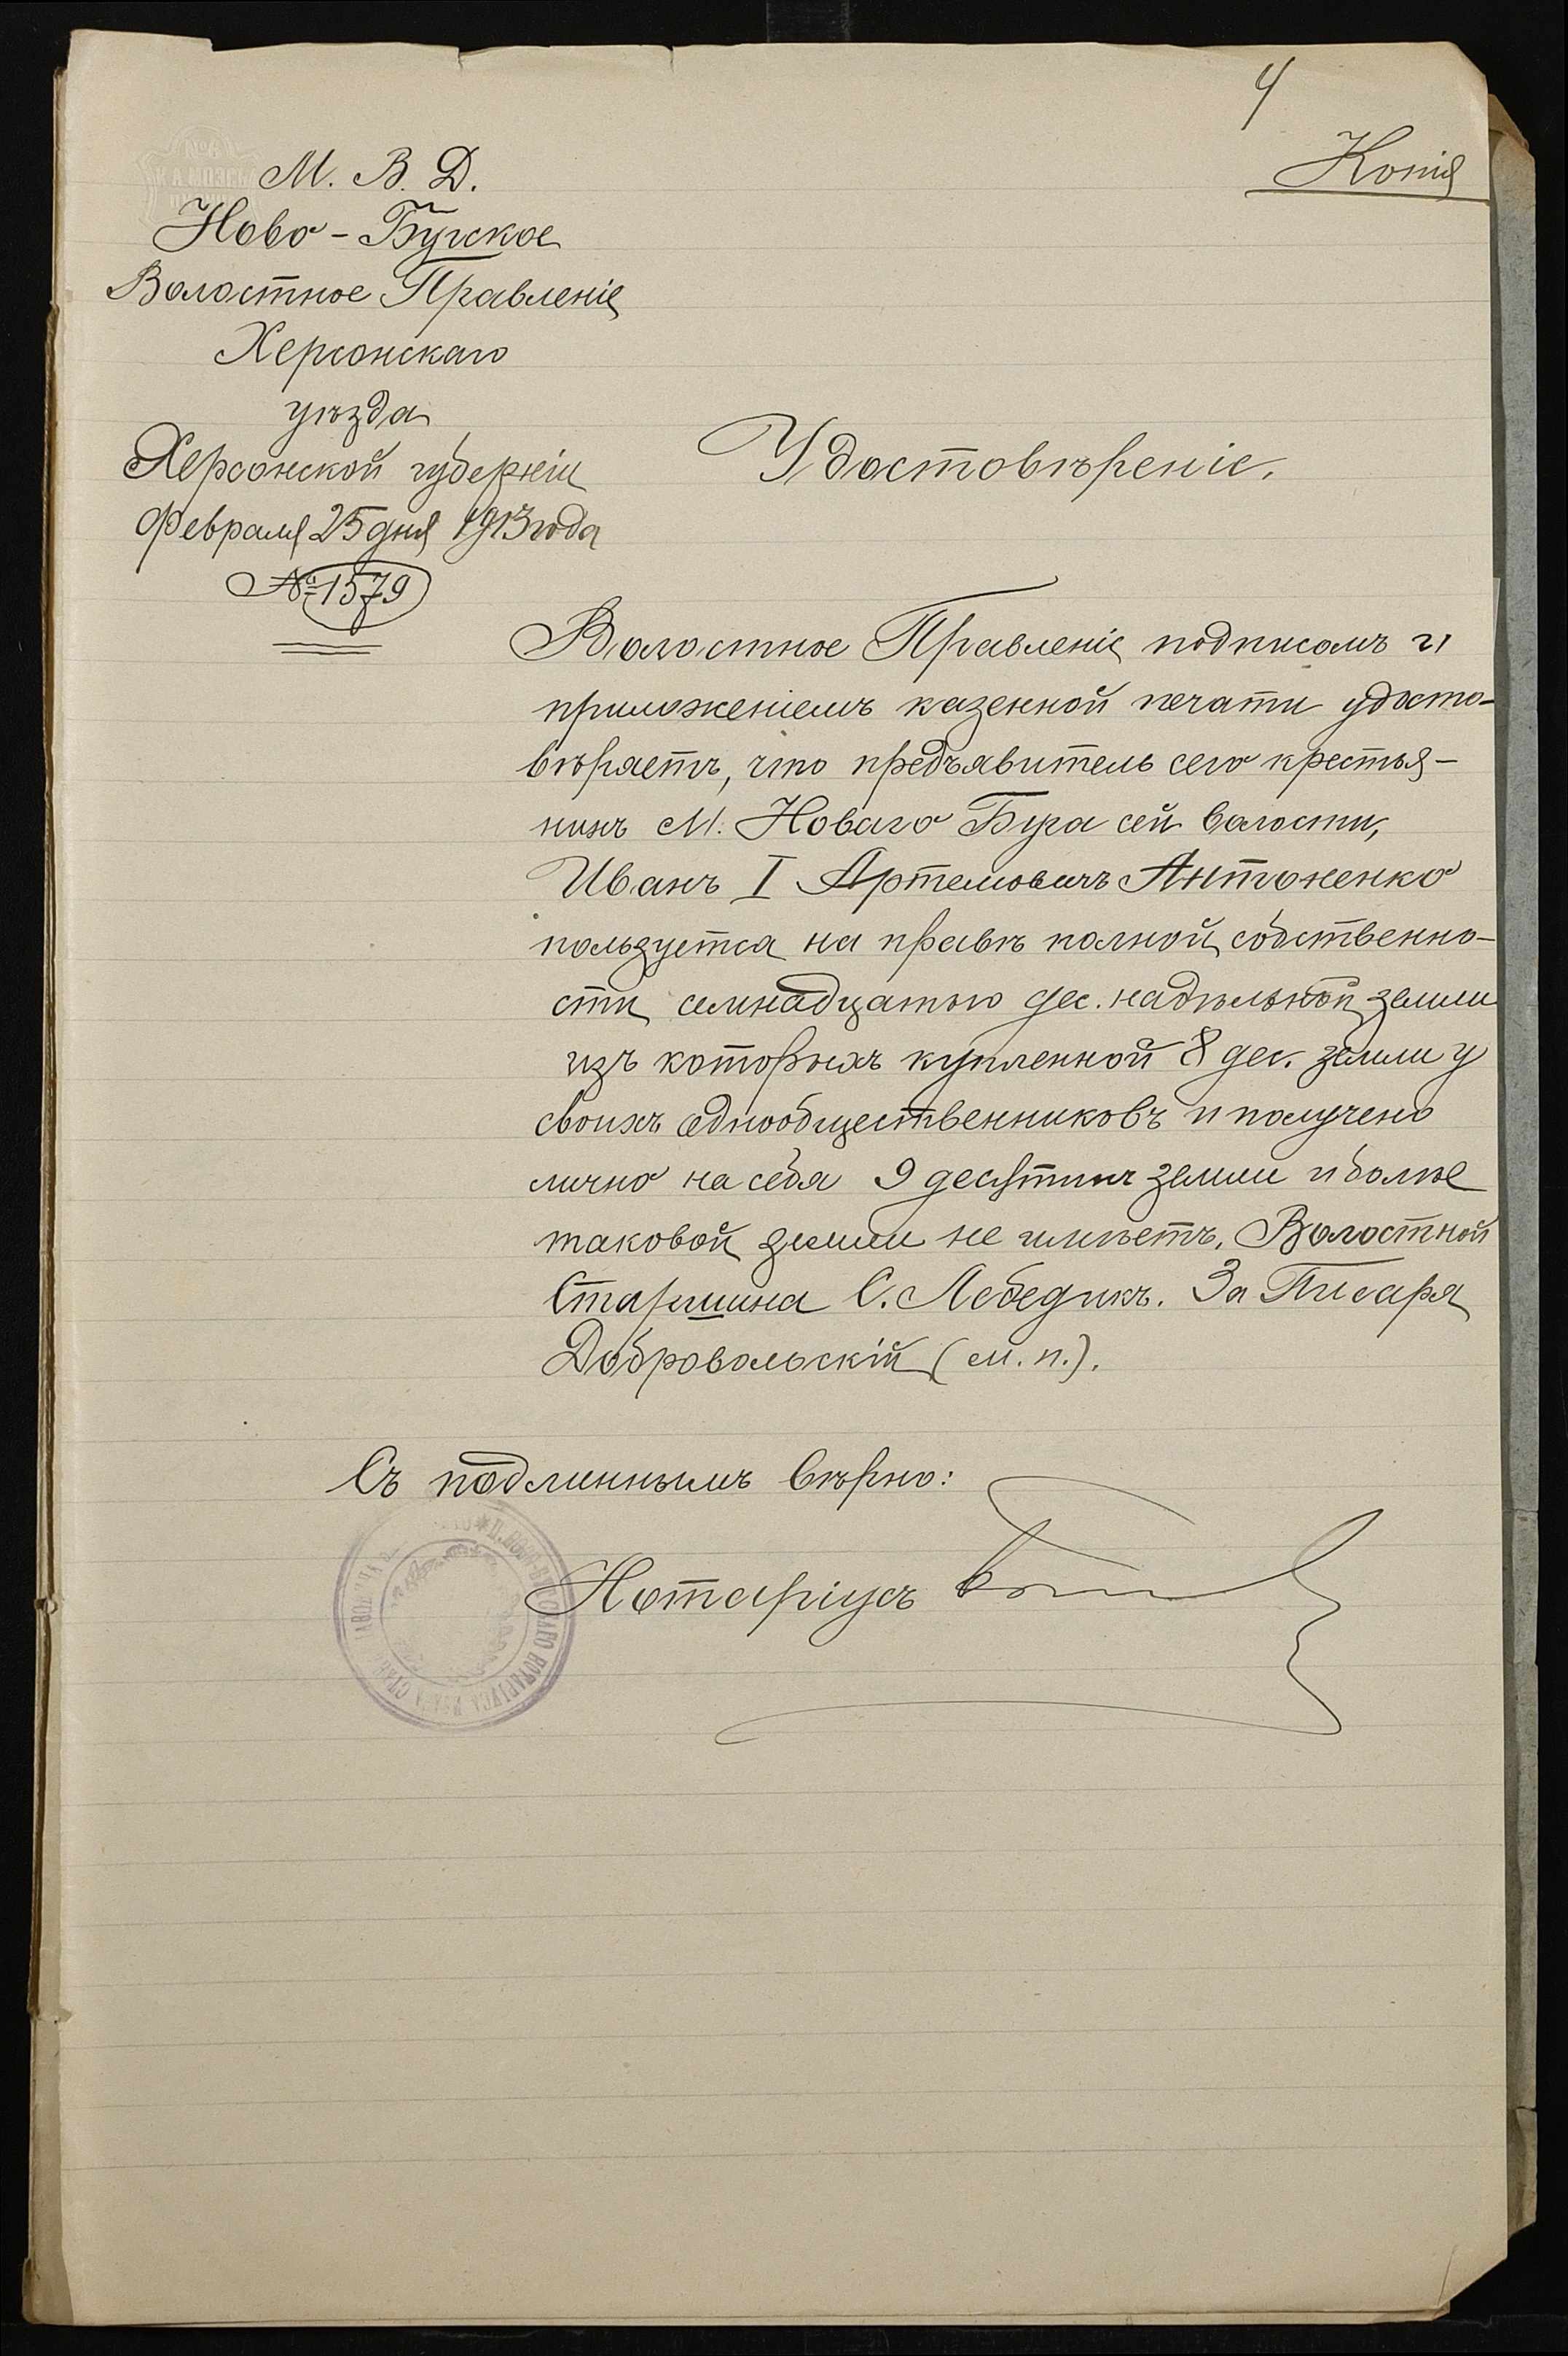 4
Копія
М. В. Д.
Ново-Бугское
Волостное Правленіе
Херсонскаго
уѣзда
Херсонской губерніи
Февраля 25 дня 1913 года
№ 1579
Удостовѣреніе.
Волостное Правленіе подписомъ и
приложеніемъ казенной печати удосто-
вѣряетъ, что предъявитель сего крестья-
нинъ М. Новаго Буга сей волости,
Иванъ I Артемовичъ Антоненко
пользуется на правѣ полной собственно-
сти семнадцатью дес. надѣльной земли
изъ которыхъ купленной 8 дес. земли у
своихъ однообщественниковъ и получено
лично на себя 9 десятинъ земли и болѣе
таковой земли не имѣетъ. Волостной
Старшина С. Лебедикъ. За Писаря
Добровольскій (м. п.).
Съ подлиннымъ вѣрно:
Нотаріусъ